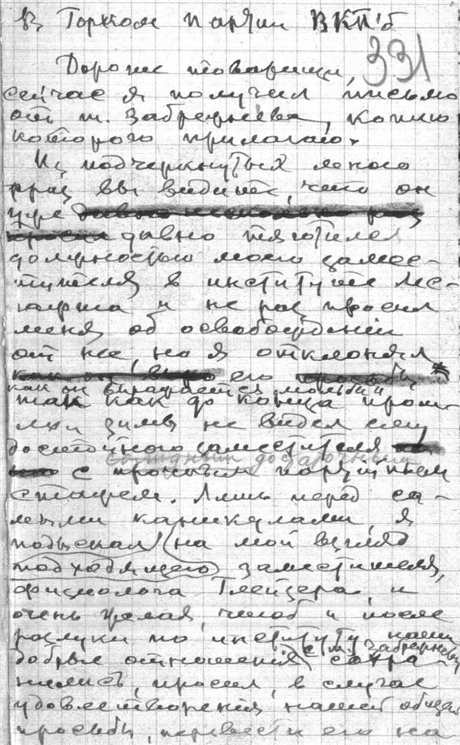 В Горком партии ВКП/б
331
Дорогие товарищи,
сейчас я получил письмо
от т. Забрежнева, копию
которого прилагаю.
Из подчеркнутых мною
фраз вы видите, что он
уже
давно тяготился
должностью моего замес-
тителя в институте Ле-
и не раз просил
меня об освобождении
от нее, но я отклонял
его
как он выражается "мольбы"
так как до конца прош-
лой зимы не видел ему
достойного заместителя
с прочным партийным
стажем. Лишь перед са-
мыми каникулами, я
подыскал (на мой взгляд
подходящего) заместителя,
физиолога Глейзера, и
очень желая, чтоб и после
разлуки по институту наши
добрые отношения с т. Забрежневым сохра-
нились, просил, в случае
удовлетворения нашей общей
просьбы, перевести его на